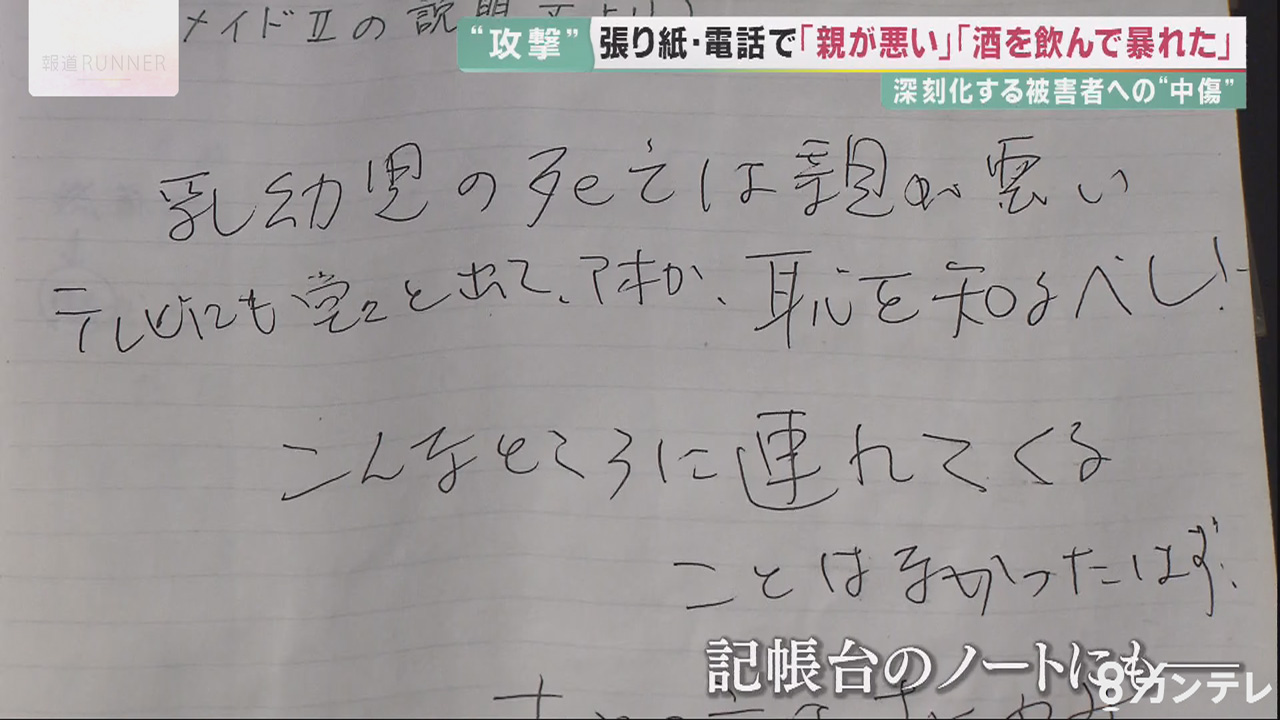 メイドⅡの説明
報道RUNNER
“攻撃” 張り紙・電話で「親が悪い」「酒を飲んで暴れた」
深刻化する被害者への“中傷”
乳幼児の死亡は親が悪い
テレビにも堂々と出て、アホか、恥を知るべし!
こんなところに連れてくる
ことはなかったはず、
記帳台のノートにも──
8カンテレ